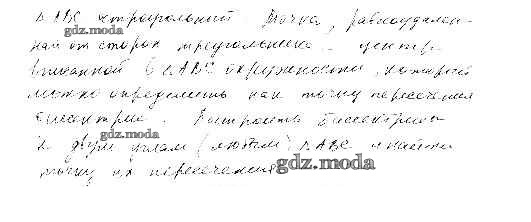 △ ABC остроугольный. Точка, равноудален-
gdz.moda
ная от сторон треугольника - центр
вписанной в △ABC окружности, который
можно определить как точку пересечения
биссектрис. Построить биссектрисы
gdz.moda
к двум углам (любым) △ABC и найти
точку их пересечения
gdz.moda